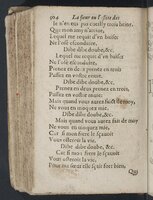 304 La fleur ou l'eslite des
Que mon amy n'arrive,
Lequel me requit d'vn baiser
Ne l'osé esconduire,
Dibe dibe double, &c.
Lequel me requit d'vn baiser
Ne l'osé esconduire,
Prenez en de prenez en trois
Passez en vostre enuie.
Dibe dibe double, &c.
Prenez en deux prenez en trois,
Passez en vostre enuie:
Mais quand vous aurez faict de moy,
Ne vous en moquez mie,
Dibe dibe double, &c.
Mais quand vous aurez fait de moy
Ne vous en moquez mie,
Car si mon frere le sçauoit
Vous osteroit la vie.
Dibe dibe double, &c.
Car si mon frere le sçauoit
Vous osteroit la vie,
Pour ma sœur elle sçait fort bien,
Quj